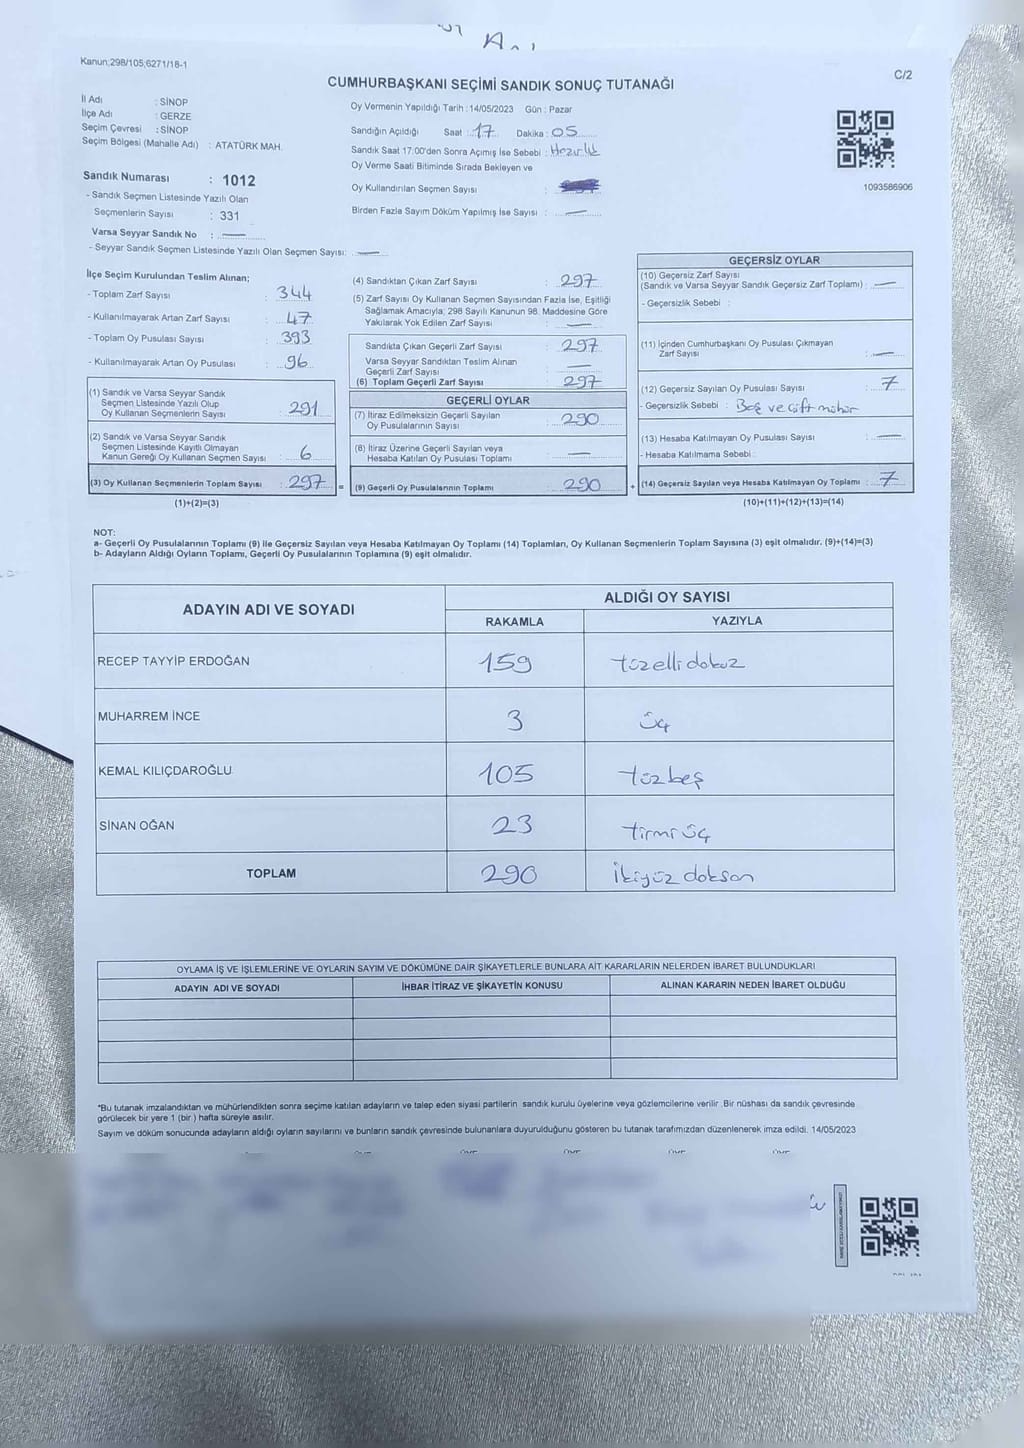 Kanun;298/105;6271/18-1
C/2
CUMHURBAŞKANI SEÇİMİ SANDIK SONUÇ TUTANAĞI
İl Adı : SİNOP
İlçe Adı : GERZE
Seçim Çevresi : SİNOP
Seçim Bölgesi (Mahalle Adı) : ATATÜRK MAH.
Sandık Numarası : 1012
- Sandık Seçmen Listesinde Yazılı Olan
Seçmenlerin Sayısı : 331
Varsa Seyyar Sandık No :
- Seyyar Sandık Seçmen Listesinde Yazılı Olan Seçmen Sayısı:
Oy Vermenin Yapıldığı Tarih : 14/05/2023 Gün : Pazar
Sandığın Açıldığı Saat : 17 Dakika : 05
Sandık Saat 17:00'den Sonra Açımış İse Sebebi : Hazırlık
Oy Verme Saati Bitiminde Sırada Bekleyen ve
Oy Kullandırılan Seçmen Sayısı :
Birden Fazla Sayım Döküm Yapılmış İse Sayısı :
1093586906
İlçe Seçim Kurulundan Teslim Alınan;
- Toplam Zarf Sayısı : 344
- Kullanılmayarak Artan Zarf Sayısı : 47
- Toplam Oy Pusulası Sayısı : 393
- Kullanılmayarak Artan Oy Pusulası : 96
(1) Sandık ve Varsa Seyyar Sandık
Seçmen Listesinde Yazılı Olup
Oy Kullanan Seçmenlerin Sayısı : 291
(2) Sandık ve Varsa Seyyar Sandık
Seçmen Listesinde Kayıtlı Olmayan
Kanun Gereği Oy Kullanan Seçmen Sayısı : 6
(3) Oy Kullanan Seçmenlerin Toplam Sayısı : 297
(1)+(2)=(3)
(4) Sandıktan Çıkan Zarf Sayısı : 297
(5) Zarf Sayısı Oy Kullanan Seçmen Sayısından Fazla İse, Eşitliği
Sağlamak Amacıyla; 298 Sayılı Kanunun 98. Maddesine Göre
Yakılarak Yok Edilen Zarf Sayısı :
Sandıkta Çıkan Geçerli Zarf Sayısı : 297
Varsa Seyyar Sandıktan Teslim Alınan
Geçerli Zarf Sayısı :
(6) Toplam Geçerli Zarf Sayısı : 297
GEÇERLİ OYLAR
(7) İtiraz Edilmeksizin Geçerli Sayılan
Oy Pusulalarının Sayısı : 290
(8) İtiraz Üzerine Geçerli Sayılan veya
Hesaba Katılan Oy Pusulası Toplamı :
= (9) Geçerli Oy Pusulalarının Toplamı : 290
GEÇERSİZ OYLAR
(10) Geçersiz Zarf Sayısı
(Sandık ve Varsa Seyyar Sandık Geçersiz Zarf Toplamı) :
- Geçersizlik Sebebi :
(11) İçinden Cumhurbaşkanı Oy Pusulası Çıkmayan
Zarf Sayısı :
(12) Geçersiz Sayılan Oy Pusulası Sayısı : 7
- Geçersizlik Sebebi : Boş ve çift mühür
(13) Hesaba Katılmayan Oy Pusulası Sayısı :
- Hesaba Katılmama Sebebi :
+ (14) Geçersiz Sayılan veya Hesaba Katılmayan Oy Toplamı : 7
(10)+(11)+(12)+(13)=(14)
NOT:
a- Geçerli Oy Pusulalarının Toplamı (9) ile Geçersiz Sayılan veya Hesaba Katılmayan Oy Toplamı (14) Toplamları, Oy Kullanan Seçmenlerin Toplam Sayısına (3) eşit olmalıdır. (9)+(14)=(3)
b- Adayların Aldığı Oyların Toplamı, Geçerli Oy Pusulalarının Toplamına (9) eşit olmalıdır.
ADAYIN ADI VE SOYADI ALDIĞI OY SAYISI
RAKAMLA YAZIYLA
RECEP TAYYİP ERDOĞAN 159 Yüzelli dokuz
MUHARREM İNCE 3 üç
KEMAL KILIÇDAROĞLU 105 Yüz beş
SİNAN OĞAN 23 Yirmi üç
TOPLAM 290 İkiyüz doksan
OYLAMA İŞ VE İŞLEMLERİNE VE OYLARIN SAYIM VE DÖKÜMÜNE DAİR ŞİKAYETLERLE BUNLARA AİT KARARLARIN NELERDEN İBARET BULUNDUKLARI
ADAYIN ADI VE SOYADI İHBAR İTİRAZ VE ŞİKAYETİN KONUSU ALINAN KARARIN NEDEN İBARET OLDUĞU
*Bu tutanak imzalandıktan ve mühürlendikten sonra seçime katılan adayların ve talep eden siyasi partilerin sandık kurulu üyelerine veya gözlemcilerine verilir .Bir nüshası da sandık çevresinde
görülecek bir yere 1 (bir ) hafta süreyle asılır.
Sayım ve döküm sonucunda adayların aldığı oyların sayılarını ve bunların sandık çevresinde bulunanlara duyurulduğunu gösteren bu tutanak tarafımızdan düzenlenerek imza edildi. 14/05/2023